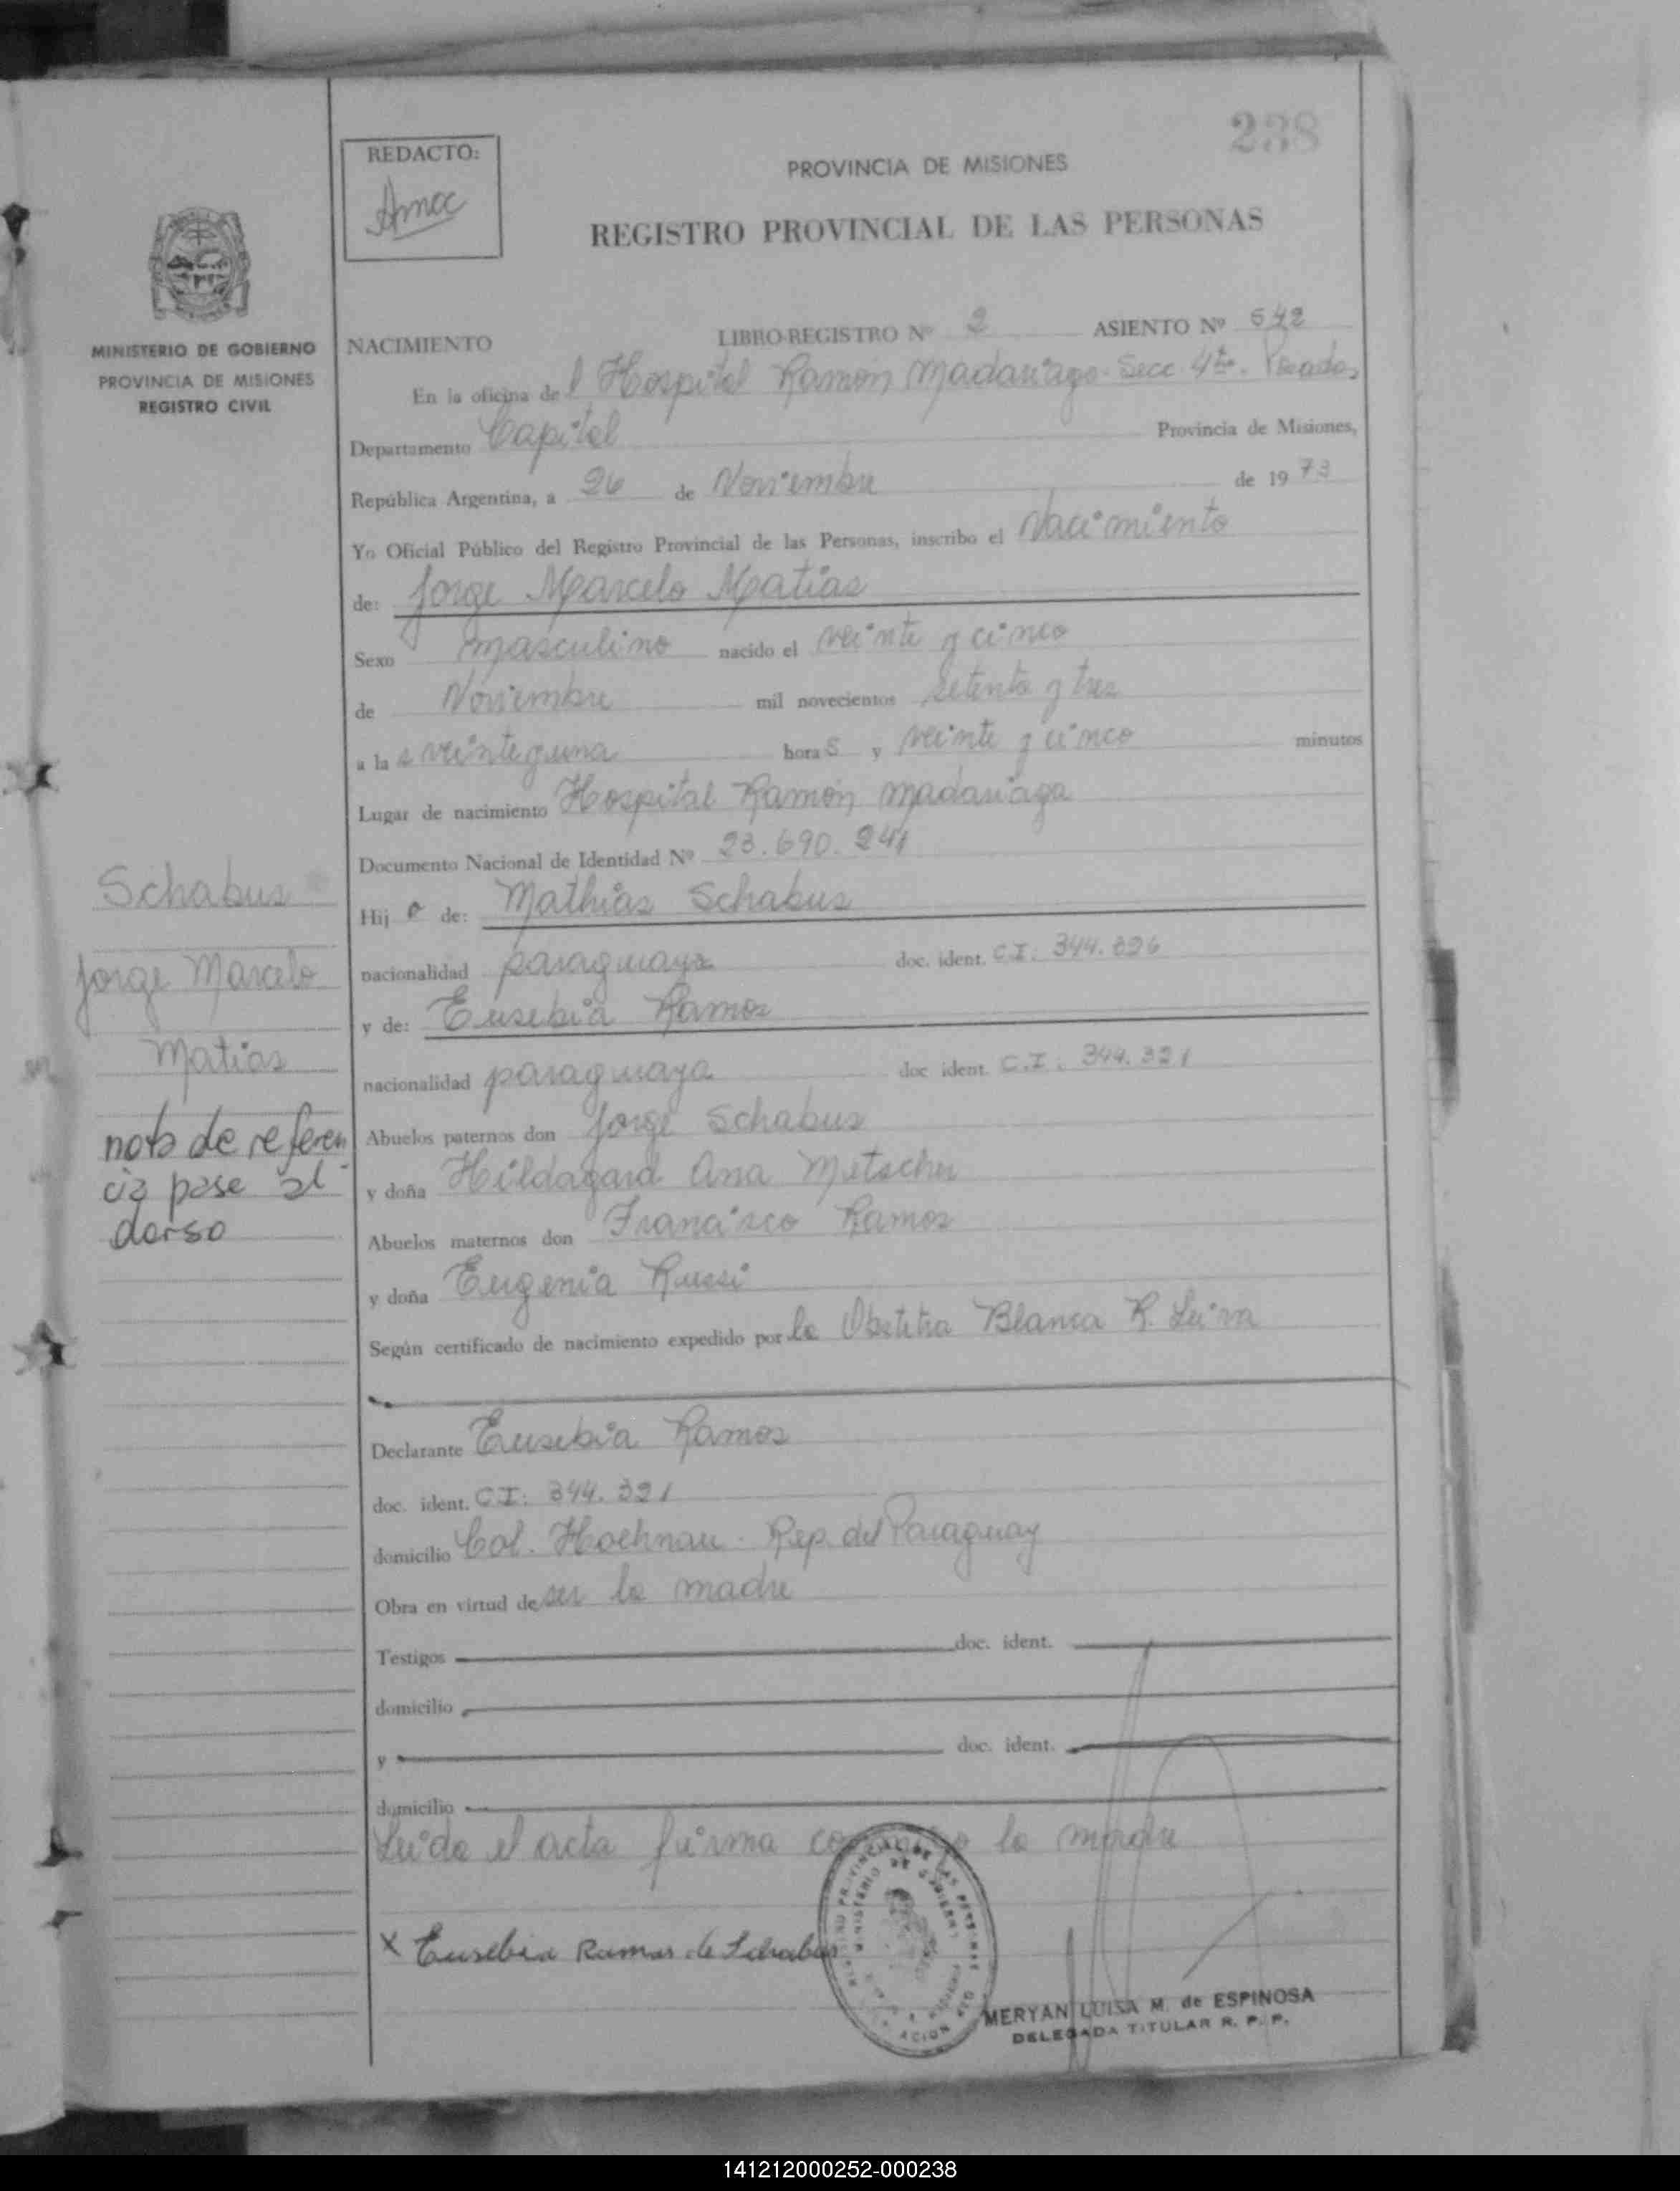 238
REDACTO:
Amcc
PROVINCIA DE MISIONES
REGISTRO PROVINCIAL DE LAS PERSONAS
MINISTERIO DE GOBIERNO
PROVINCIA DE MISIONES
REGISTRO CIVIL
NACIMIENTO LIBRO-REGISTRO Nº 2 ASIENTO Nº 542
En la oficina del Hospital Ramón Madariaga - Secc. 4ta. Posadas
Departamento Capital Provincia de Misiones,
República Argentina, a 26 de Noviembre de 1973
Yo Oficial Público del Registro Provincial de las Personas, inscribo el Nacimiento
de: Jorge Marcelo Matias
Sexo masculino nacido el veinte y cinco
de Noviembre mil novecientos setenta y tres
a las veinte y una horas y veinte y cinco minutos
Lugar de nacimiento Hospital Ramón Madariaga
Documento Nacional de Identidad Nº 23.690.241
Hijo de: Mathias Schabus
nacionalidad paraguaya doc. ident. C.I: 344.326
y de: Eusebia Ramos
nacionalidad paraguaya doc ident. C.I: 344.321
Abuelos paternos don Jorge Schabus
y doña Hildagard Ana Metscher
Abuelos maternos don Francisco Ramos
y doña Eugenia Russi
Según certificado de nacimiento expedido por la Obstetra Blanca R. Leiva
Declarante Eusebia Ramos
doc. ident. C.I: 344.321
domicilio Col. Hoehnau - Rep. del Paraguay
Obra en virtud de ser la madre
Testigos doc. ident.
domicilio
y doc. ident.
domicilio
Leida el acta firma conmigo la madre
X Eusebia Ramos de Schabus
MERYAN LUISA M. de ESPINOSA
DELEGADA TITULAR R. P. P.
Schabus
Jorge Marcelo
Matias
nota de referen
cia pase al
dorso
141212000252-000238